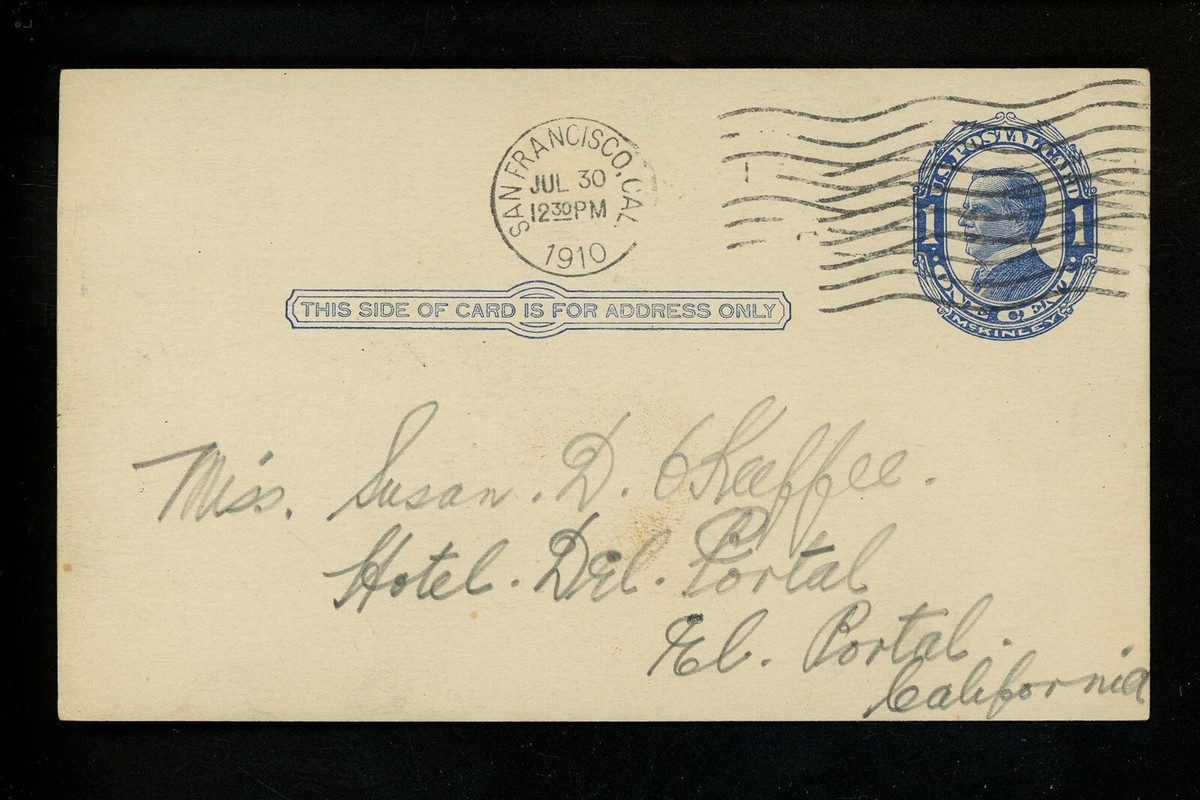 SAN FRANCISCO, CAL.
JUL 30
12 30 PM
1910
U.S. POSTAL CARD
1 1
ONE CENT
McKINLEY
THIS SIDE OF CARD IS FOR ADDRESS ONLY
Miss. Susan. D. O'Keeffee.
Hotel. DEl. Portal
El. Portal.
California